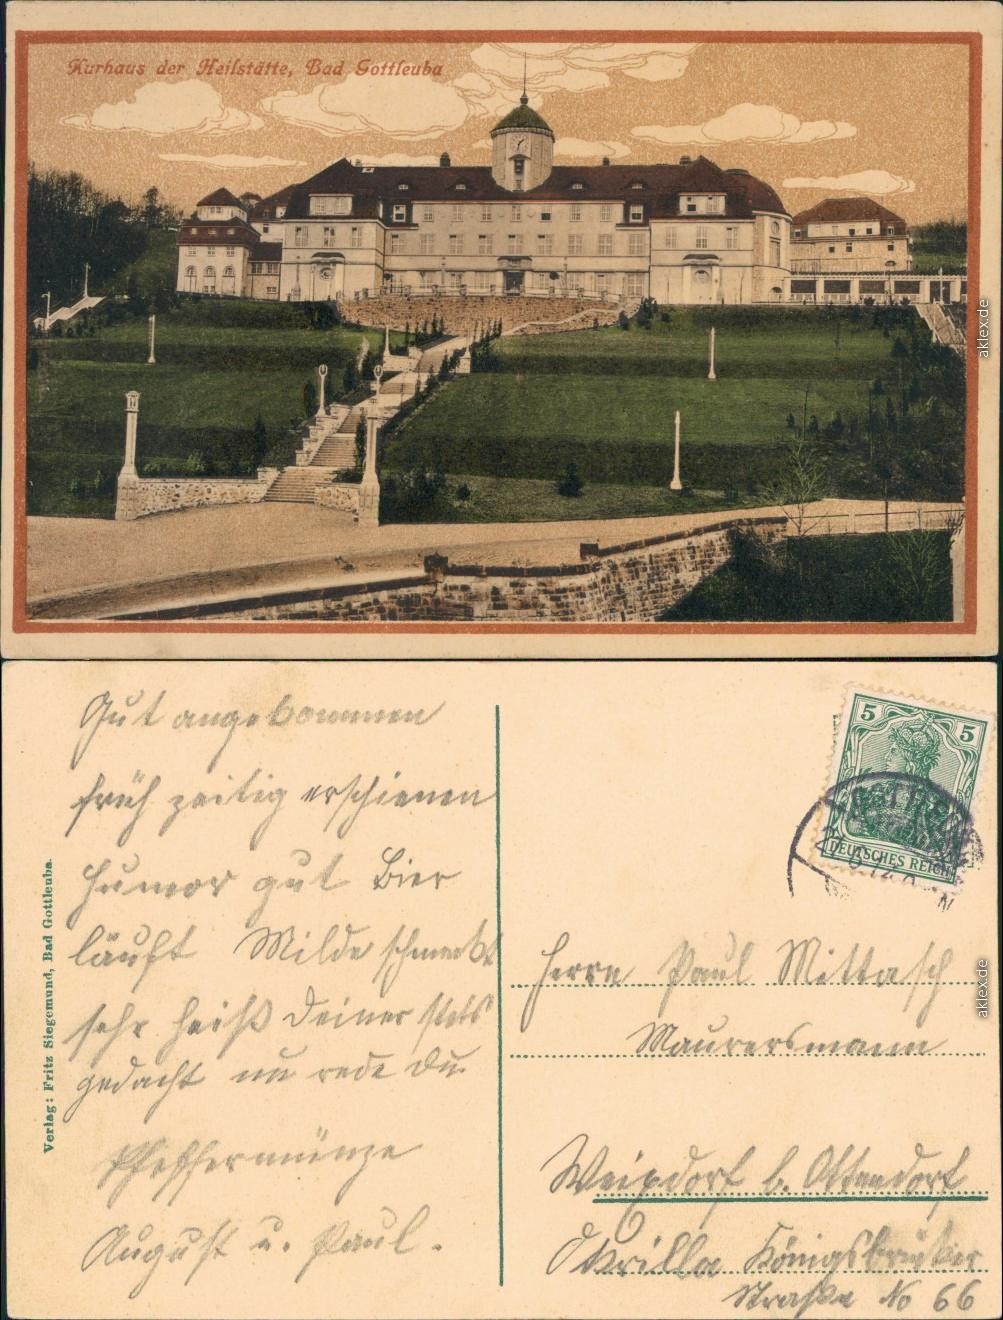 Kurhaus der Heilstätte, Bad Gottleuba
aklex.de
Gut angekommen
früh zeitig erschienen
Humor gut Bier
läuft Milde schmeckt
sehr heiß Deiner stets
gedacht nu rede Du
Pfeffermünze
August u. Paul.
Verlag: Fritz Siegemund, Bad Gottleuba.
5 5
DEUTSCHES REICH
aklex.de
Herrn Paul Mittasch
Maurersmann
Weixdorf b. Ottendorf
Okrilla Königsbrücker
Straße No 66